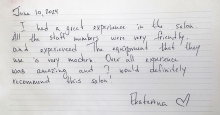 June 10, 2024
I had a great experience in the salon.
All the staff members were very friendly
and experienced. The equipment that they
use is very modern. Over all experience
was amazing and I would definitely
recommend this salon!
Ekaterina ♡